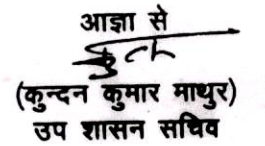 आज्ञा से
(कुन्दन कुमार माथुर)
उप शासन सचिव